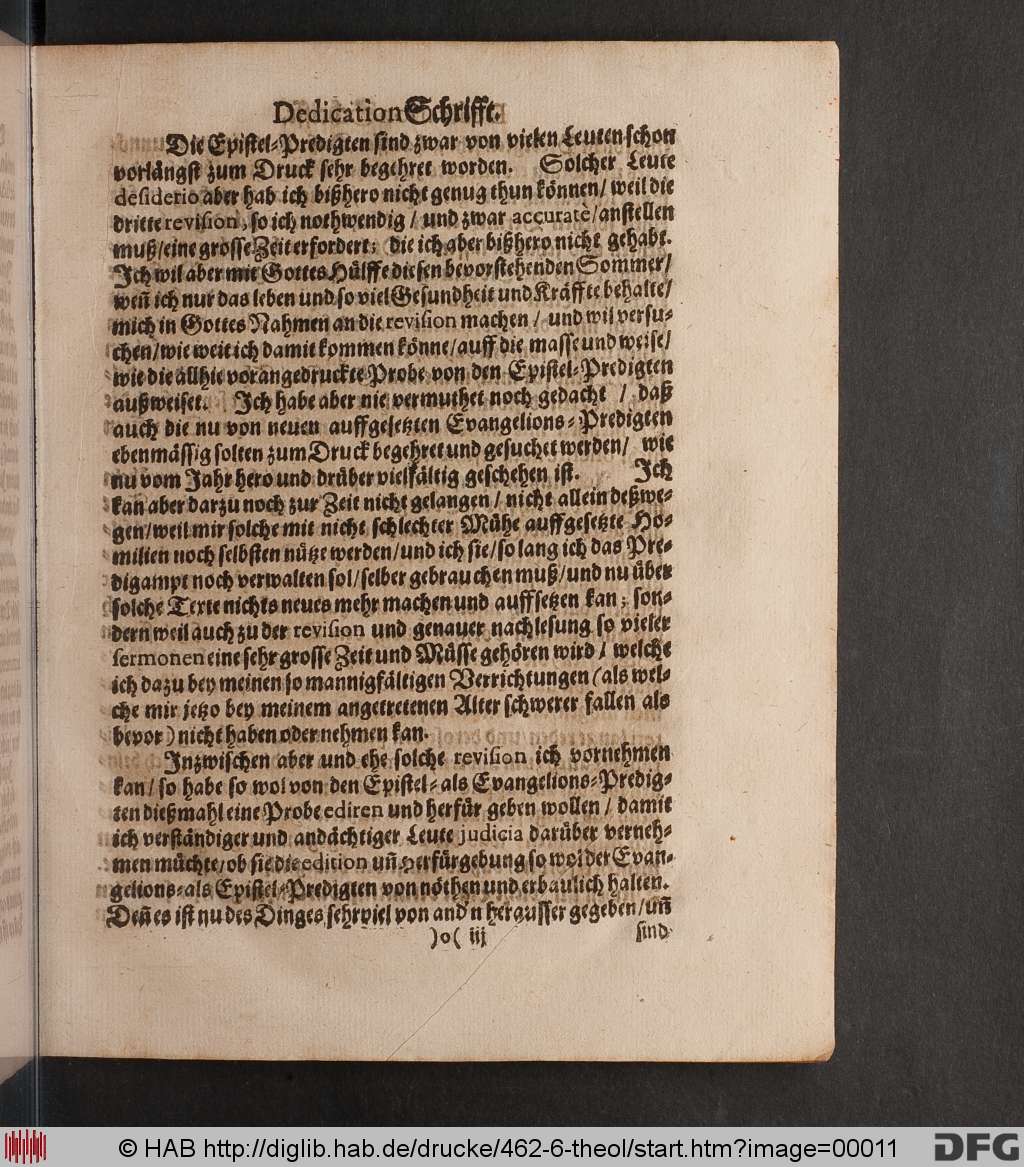 Dedication Schrifft.
Die Epistel-Predigten sind zwar von vielen Leuten schon
vorlängst zum Druck sehr begehret worden. Solcher Leute
desiderio aber hab ich bißhero nicht genug thun können/ weil die
dritte revision, so ich nothwendig/ und zwar accuratè/ anstellen
muß/ eine grosse Zeit erfordert; die ich aber bißhero nicht gehabt.
Ich wil aber mit Gottes Hülffe diesen bevorstehenden Sommer/
weñ ich nur das leben und so viel Gesundheit und Kräffte behalte/
mich in Gottes Nahmen an die revision machen/ und wil versu-
chen/ wie weit ich damit kommen könne/ auff die masse und weise/
wie die allhie vorangedruckte Probe von den Epistel-Predigten
außweiset. Ich habe aber nie vermuthet noch gedacht/ daß
auch die nu von neuen auffgesetzten Evangelions-Predigten
ebenmässig solten zum Druck begehret und gesuchet werden/ wie
nu vom Jahr hero und drüber vielfältig geschehen ist. Ich
kan aber darzu noch zur Zeit nicht gelangen/ nicht allein deßwe-
gen/ weil mir solche mit nicht schlechter Mühe auffgesetzte Ho-
milien noch selbsten nütze werden/ und ich sie/ so lang ich das Pre-
digampt noch verwalten sol/ selber gebrauchen muß/ und nu über
solche Texte nichts neues mehr machen und auffsetzen kan; son-
dern weil auch zu der revision und genauer nachlesung so vieler
sermonen eine sehr grosse Zeit und Müsse gehören wird/ welche
ich dazu bey meinen so mannigfältigen Verrichtungen (als wel-
che mir jetzo bey meinem angetretenen Alter schwerer fallen als
bevor) nicht haben oder nehmen kan.
Inzwischen aber und ehe solche revision ich vornehmen
kan/ so habe so wol von den Epistel- als Evangelions-Predig-
ten dießmahl eine Probe ediren und herfür geben wollen/ damit
ich verständiger und andächtiger Leute judicia darüber verneh-
men müchte/ ob sie die edition uñ Herfürgebung so wol der Evan-
gelions- als Epistel-Predigten von nöthen und erbaulich halten.
Deñ es ist nu des Dinges sehr viel von and'n herausser gegeben/ uñ
)o( iij sind
© HAB http://diglib.hab.de/drucke/462-6-theol/start.htm?image=00011
DFG